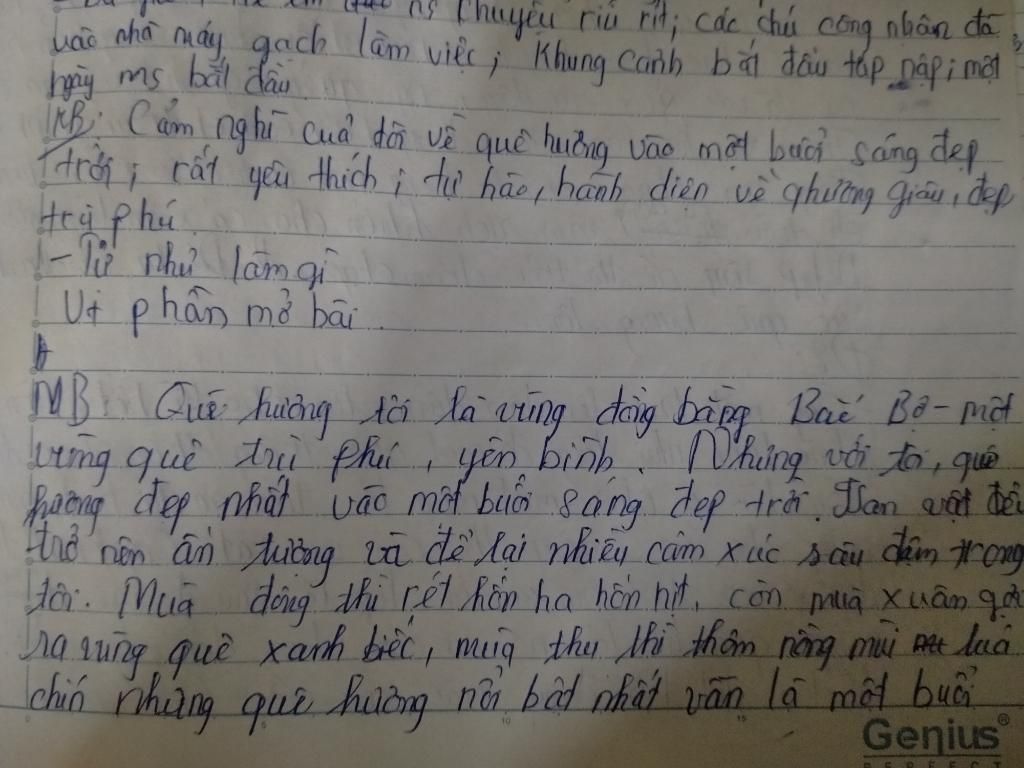 ns chuyện ríu rít; các chú công nhân đã
vào nhà máy gạch làm việc; Khung cảnh bắt đầu tấp nập; một
ngày ms bắt đầu
KB: Cảm nghĩ cuả tôi về quê hương vào một buổi sáng đẹp
trời; rất yêu thích; tự hào, hãnh diện về qhương giàu, đẹp
trù phú.
- Từ như làm gì
Vt phần mở bài.
MB: Quê hương tôi là vùng đồng bằng Bắc Bộ - một
vùng quê trù phú, yên bình. Nhưng với tôi, quê
hương đẹp nhất vào một buổi sáng đẹp trời. vật đều
trở nên ấn tượng và để lại nhiều cảm xúc sâu đậm trong
tôi. Mùa đông thì rét hối hả, còn mùa xuân gợi
ra vùng quê xanh biếc, mùa thu thì thơm nồng mùi luá
chín nhưng quê hương nổi bật nhất vẫn là một buổi
Genius®
PERFECT